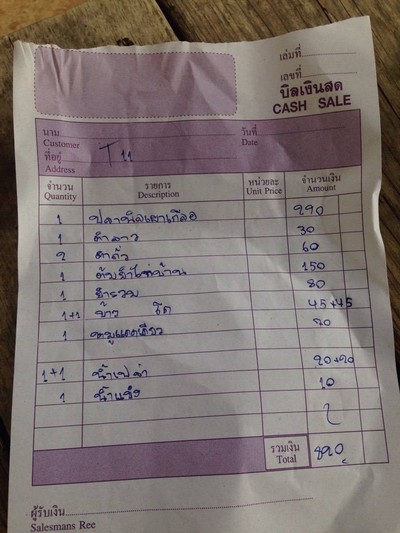 เล่มที่
เลขที่
บิลเงินสด
CASH SALE
นาม วันที่
Customer Date
ที่อยู่ T11
Address
จำนวน รายการ หน่วยละ จำนวนเงิน
Quantity Description Unit Price Amount
1 ปลานิลเผาเกลือ 290
1 ตำลาว 30
2 60
1 ต้มยำไก่บ้าน 150
1 ยำรวม 80
1+1 ข้าว 45+45
1 หมูแดดเดียว
1+1 น้ำเปล่า 20+20
1 น้ำแข็ง 10
รวมเงิน
Total 890
ผู้รับเงิน
Salesmans Ree